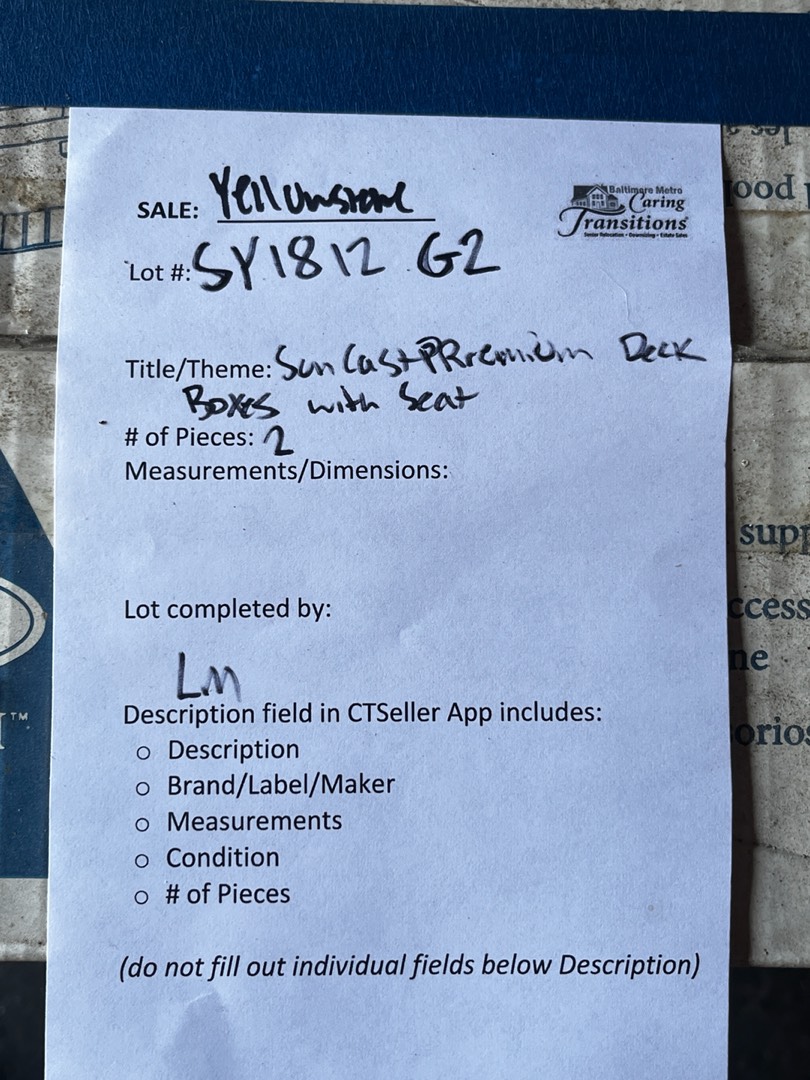 SALE: Yellowstone
Baltimore Metro
Caring
Transitions
Senior Relocation • Downsizing • Estate Sales
Lot #: SY1812 G2
Title/Theme: Sun Cast PRremium Deck
Boxes with Seat
# of Pieces: 2
Measurements/Dimensions:
Lot completed by:
LM
Description field in CTSeller App includes:
○ Description
○ Brand/Label/Maker
○ Measurements
○ Condition
○ # of Pieces
(do not fill out individual fields below Description)
TM